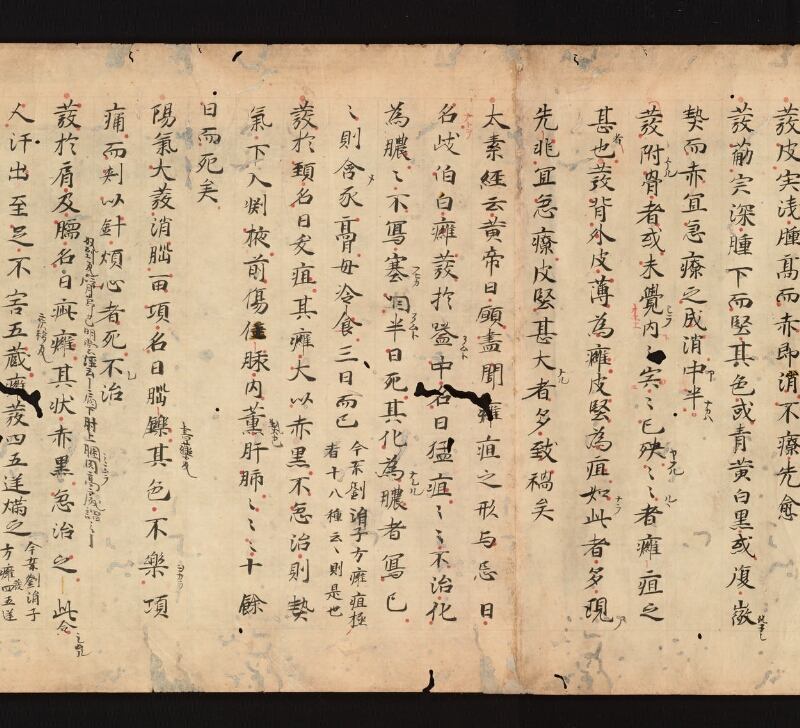 發皮実浅腫高而赤即消不療先愈
發筋実深腫下而堅其色或青黄白黒或復
𠡠而赤宜急療之成消中半
發附骨者或未覺内実〻已殃〻〻者癰疽之
甚也發背外皮薄為癰皮堅為疽如此者多現
先非宜急療皮堅甚大者多致禍矣
太素經云黄帝曰願盡聞癰疽之形与忌日
名岐伯曰癰發於嗌中名曰猛疽〻〻不治化
為膿〻不寫塞咽半日死其化為膿者寫已
〻則含豕膏毋冷食三日而已
今案劉涓子方癰疽極
者十八種云〻則是也
發於頚名曰夭疽其癰大以赤黒不急治則𠡠
氣下入渕掖前傷任脉内薫肝肺〻〻〻十餘
日而死矣
陽氣大發消脳留項名曰脳鑠其色不樂項
痛而刾以針煩心者死不治
發於肩及臑名曰疵癰其状赤黒急治之此令
人汗出至足不害五蔵癰發四五逞爇之
今案劉涓子
方癰發四五逞